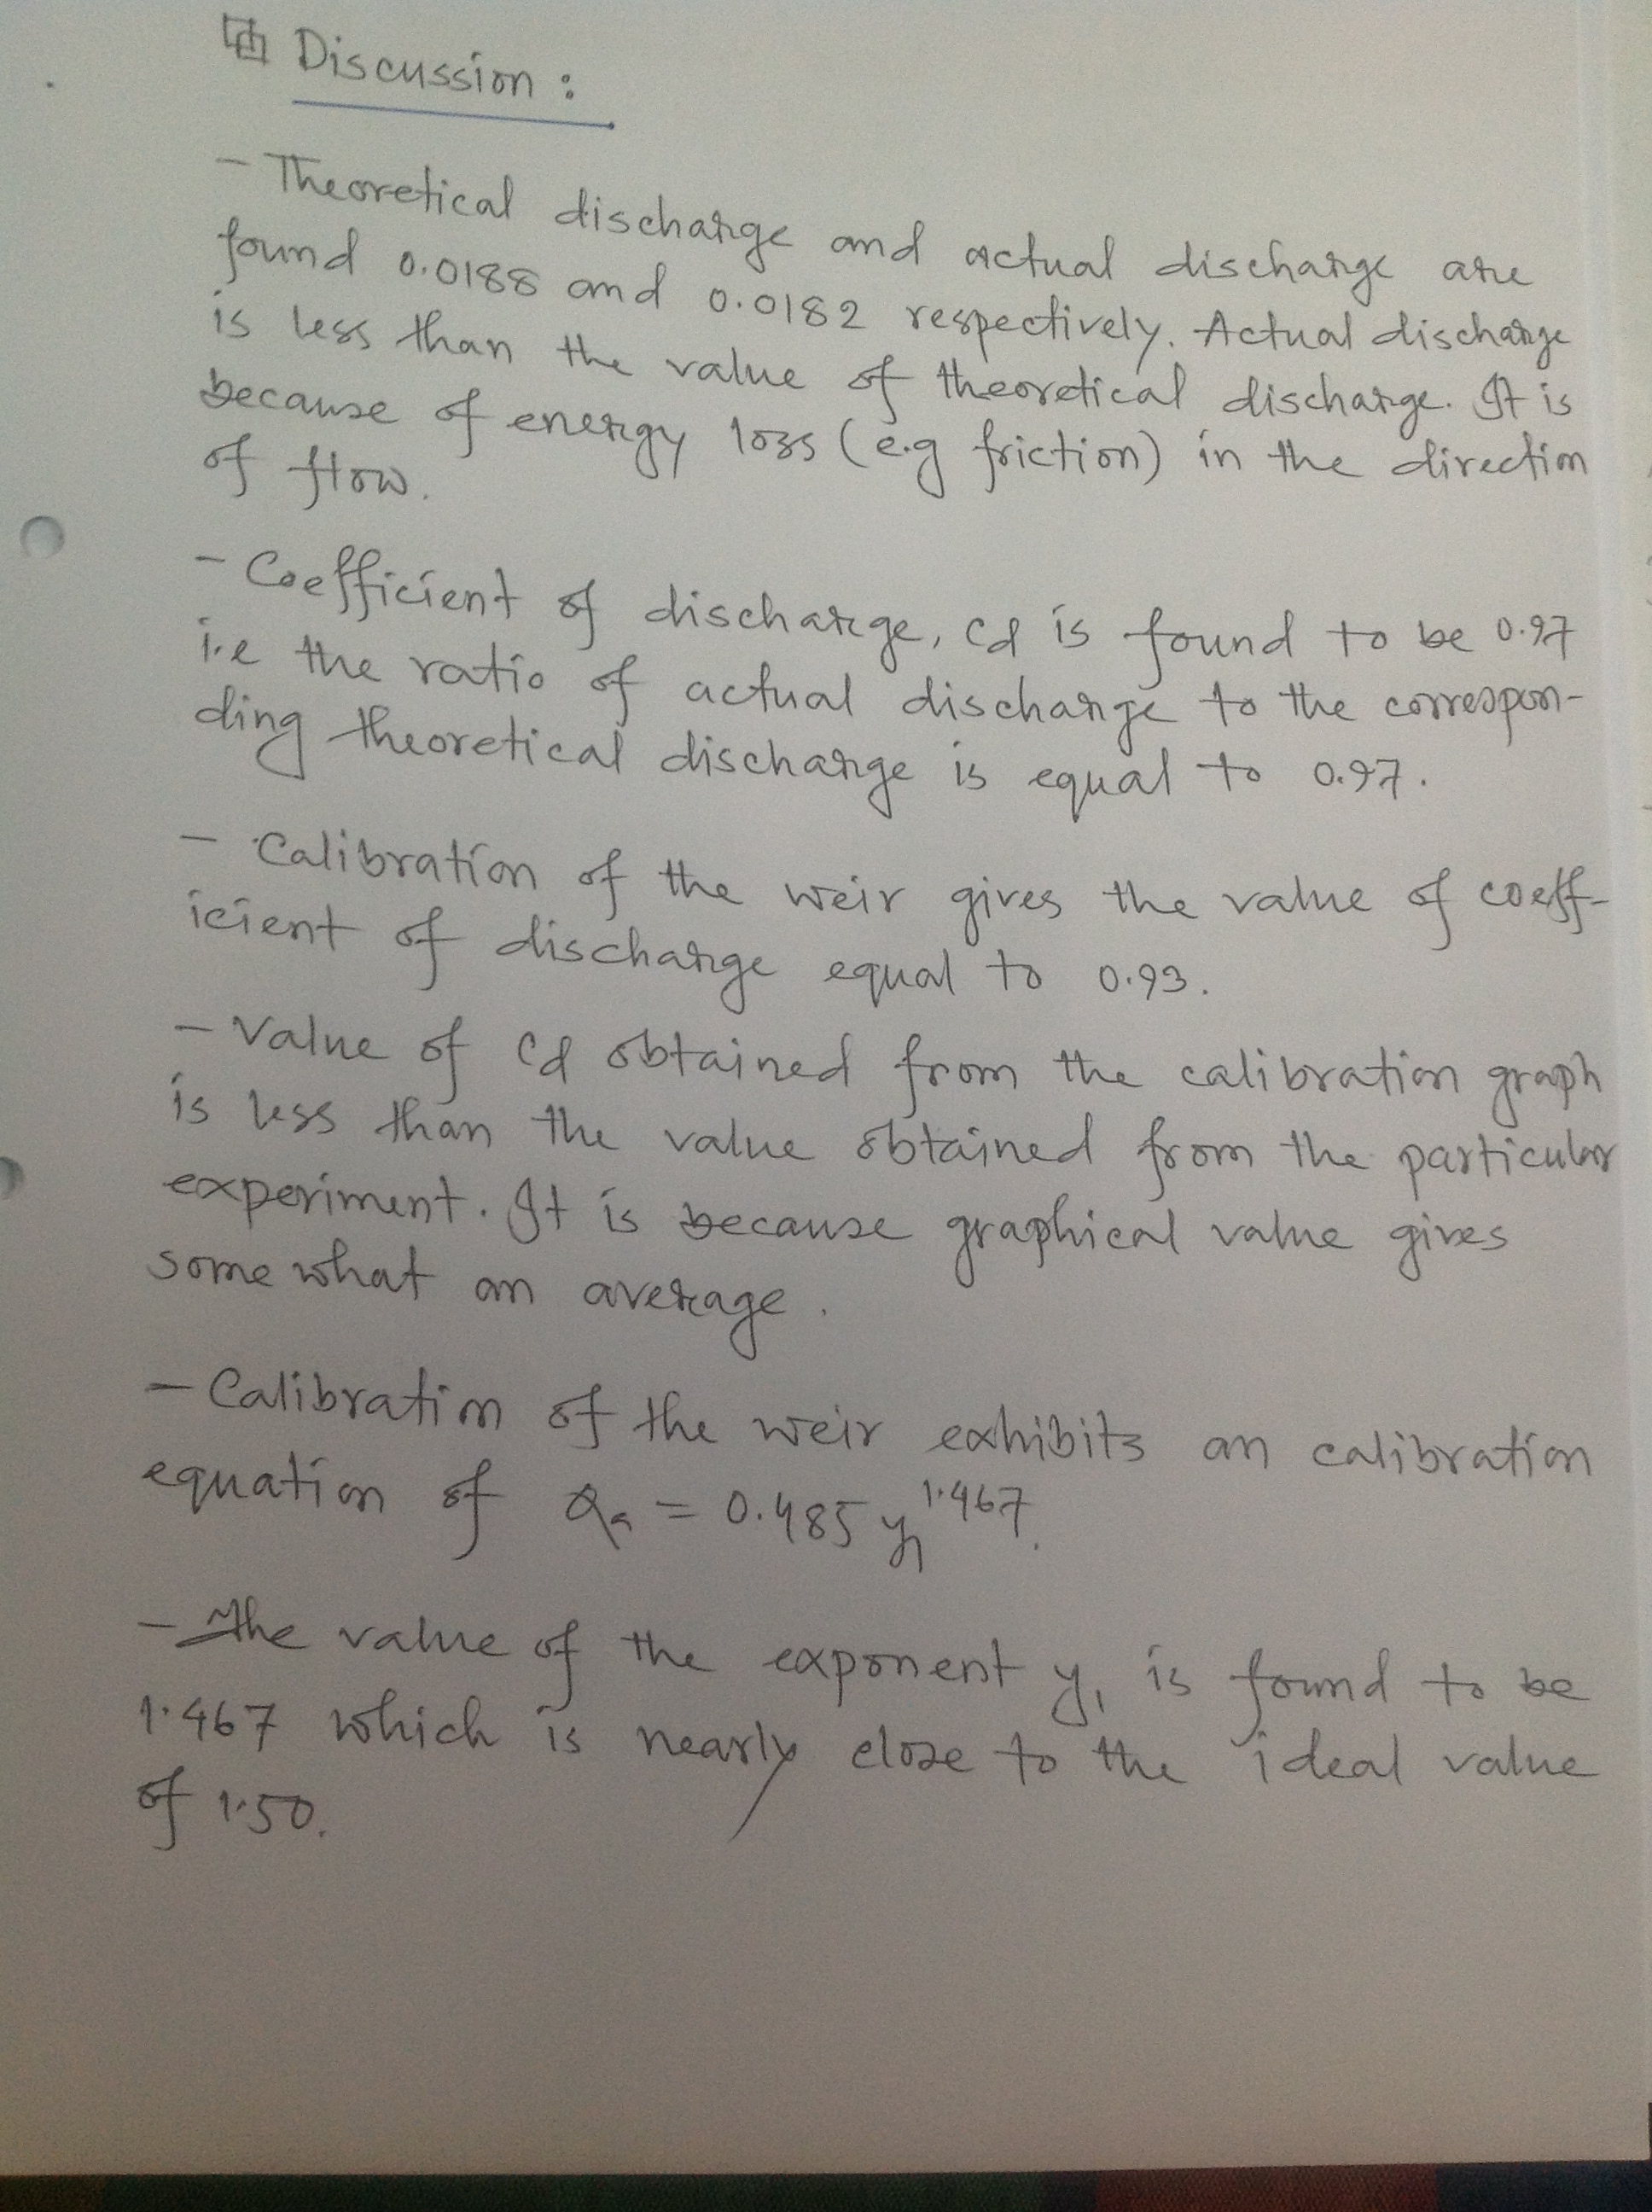 Discussion :
- Theoretical discharge and actual discharge are
found 0.0188 and 0.0182 respectively. Actual discharge
is less than the value of theoretical discharge. It is
because of energy loss (e.g friction) in the direction
of flow.
- Coefficient of discharge, Cd is found to be 0.97
i.e the ratio of actual discharge to the correspon-
ding theoretical discharge is equal to 0.97.
- Calibration of the weir gives the value of coeff-
icient of discharge equal to 0.93.
- Value of Cd obtained from the calibration graph
is less than the value obtained from the particular
experiment. It is because graphical value gives
some what an average.
- Calibration of the weir exhibits an calibration
equation of Qa = 0.485 y₁^1.467.
- The value of the exponent y₁ is found to be
1.467 which is nearly close to the ideal value
of 1.50.